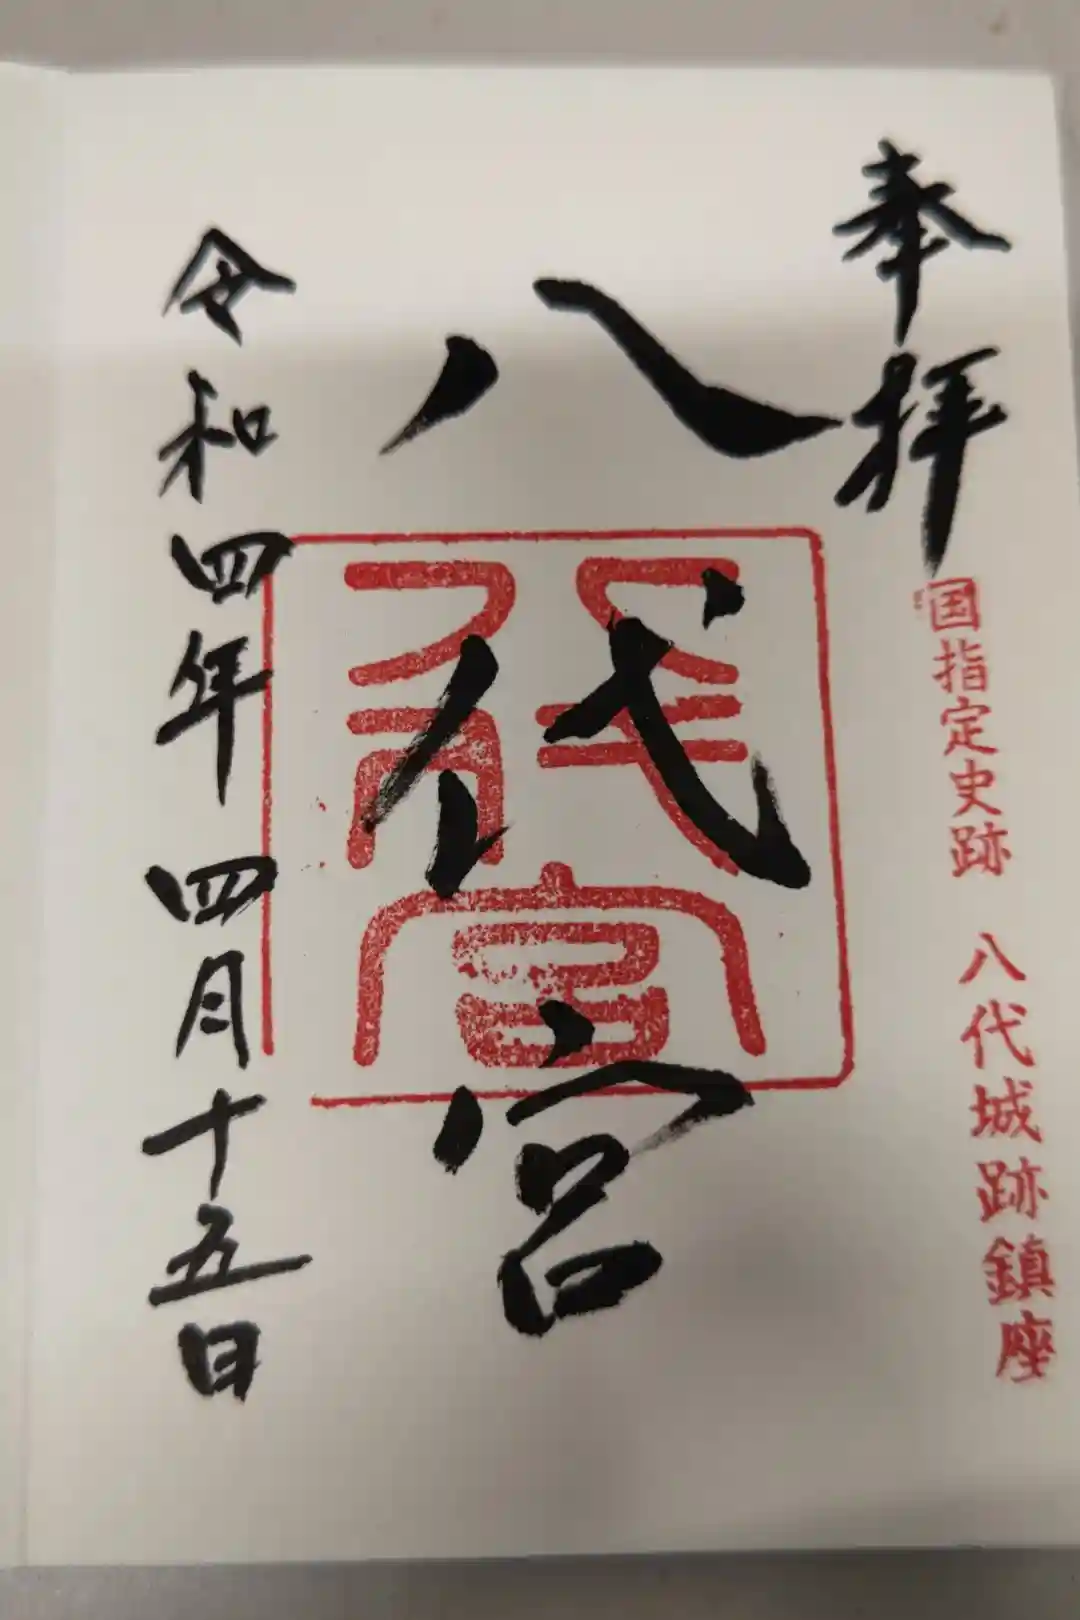 奉拝
国指定史跡 八代城跡鎮座
八代宮
八代宮
令和四年四月十五日